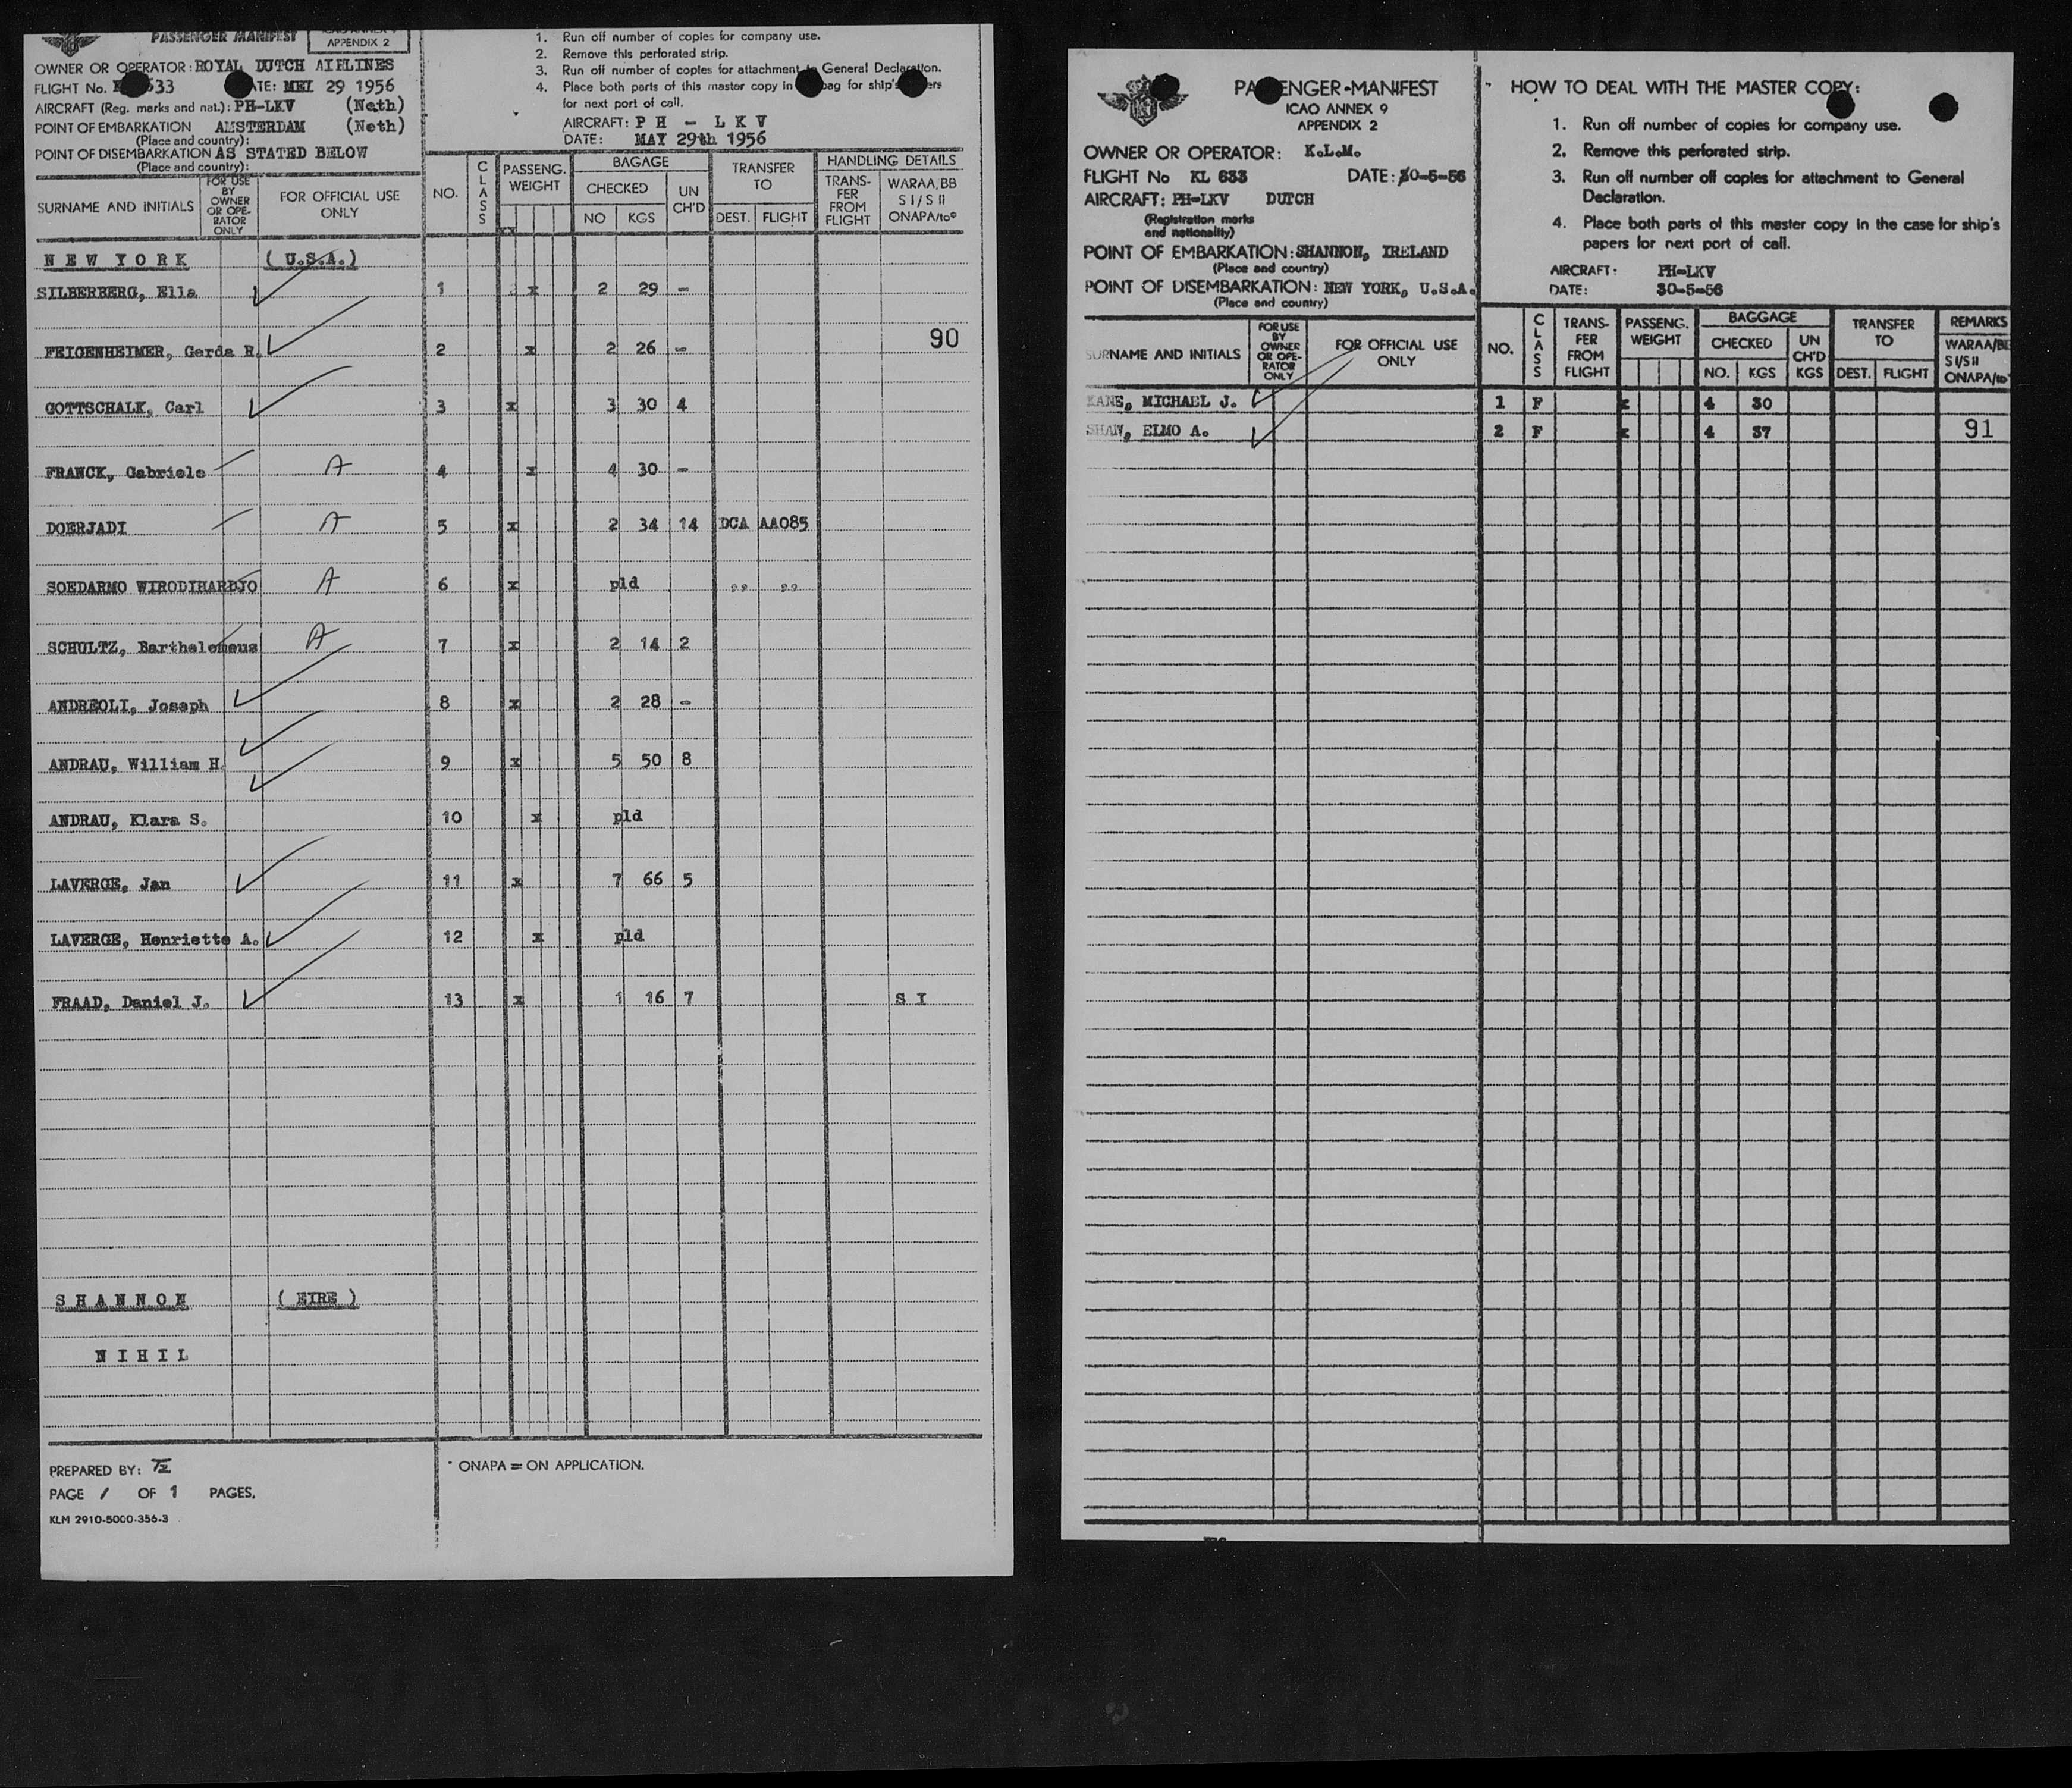 PASSENGER MANIFEST
APPENDIX 2
OWNER OR OPERATOR: ROYAL DUTCH AIRLINES
FLIGHT No. 633 DATE: MEI 29 1956
AIRCRAFT (Reg. marks and nat.): PH-LKV (Neth)
POINT OF EMBARKATION AMSTERDAM (Neth)
(Place and country):
POINT OF DISEMBARKATION AS STATED BELOW
(Place and country):
SURNAME AND INITIALS FOR USE BY OWNER OR OPE-RATOR ONLY FOR OFFICIAL USE ONLY
1. Run off number of copies for company use.
2. Remove this perforated strip.
3. Run off number of copies for attachment to General Declaration.
4. Place both parts of this master copy in bag for ship's
for next port of call.
AIRCRAFT: P H - L K V
DATE: MAY 29th 1956
NO. CLASS PASSENG. WEIGHT BAGAGE CHECKED NO KGS UN CH'D TRANSFER TO DEST. FLIGHT HANDLING DETAILS TRANS-FER FROM FLIGHT WARAA, BB S I / S II ONAPA/to*
N E W Y O R K ( U.S.A.)
SILBERBERG, Ella 1 x 2 29 -
90
FEIGENHEIMER, Gerda R. 2 x 2 26 -
GOTTSCHALK, Carl 3 x 3 30 4
FRANCK, Gabriele A 4 x 4 30 -
DOERJADI A 5 x 2 34 14 DCA AA085
SOEDARMO WIRODIHARDJO A 6 x pld ,, ,,
SCHOLTZ, Bartholomeus A 7 x 2 14 2
ANDREOLI, Joseph 8 x 2 28 -
ANDRAU, William H. 9 x 5 50 8
ANDRAU, Klara S. 10 x pld
LAVERGE, Jan 11 x 7 66 5
LAVERGE, Henriette A. 12 x pld
FRAAD, Daniel J. 13 x 1 16 7 S I
S H A N N O N ( EIRE )
N I H I L
PREPARED BY:
PAGE 1 OF 1 PAGES.
KLM 2910-5000-356-3
* ONAPA = ON APPLICATION.
PASSENGER-MANIFEST
ICAO ANNEX 9
APPENDIX 2
OWNER OR OPERATOR: K.L.M.
FLIGHT No KL 633 DATE: 30-5-56
AIRCRAFT: PH-LKV DUTCH
(Registration marks
and nationality)
POINT OF EMBARKATION: SHANNON, IRELAND
(Place and country)
POINT OF DISEMBARKATION: NEW YORK, U.S.A.
(Place and country)
SURNAME AND INITIALS FOR USE BY OWNER OR OPE-RATOR ONLY FOR OFFICIAL USE ONLY
HOW TO DEAL WITH THE MASTER COPY:
1. Run off number of copies for company use.
2. Remove this perforated strip.
3. Run off number off copies for attachment to General
Declaration.
4. Place both parts of this master copy in the case for ship's
papers for next port of call.
AIRCRAFT: PH-LKV
DATE: 30-5-56
NO. CLASS TRANS-FER FROM FLIGHT PASSENG. WEIGHT BAGGAGE CHECKED NO. KGS UN CH'D KGS TRANSFER TO DEST. FLIGHT REMARKS WARAA/BB S I/S II ONAPA/to
KANE, MICHAEL J. 1 F x 4 30
SHAW, ELMO A. 2 F x 4 37 91